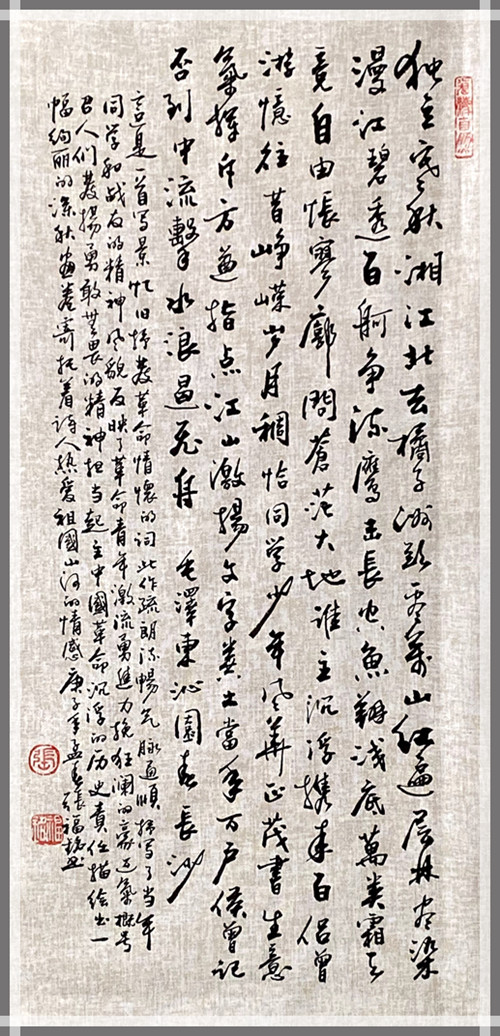 独立寒秋湘江北去橘子洲头看萬山红遍层林尽染
漫江碧透百舸争流鹰击長空魚翔浅底萬类霜天
竟自由怅寥廓問蒼茫大地谁主沉浮携来百侣曾
游憶往昔峥嵘岁月稠恰同学少年风華正茂書生意
氣揮斥方遒指点江山激揚文字粪土當年万户侯曾记
否到中流擊水浪遏飞舟 毛澤東沁園春長沙
這是一首写景忆旧抒發革命情懷的词此作疏朗流暢气脉通順抒写了当年
同学和战友的精神风貌反映了革命青年激流勇進力挽狂澜的豪迈氣概号
召人们發揚勇敢無畏的精神担当起主中國革命沉浮的历史責任描绘出一
幅绚丽的深秋画卷寄托着诗人热爱祖國山河的情感庚子年孟春張福